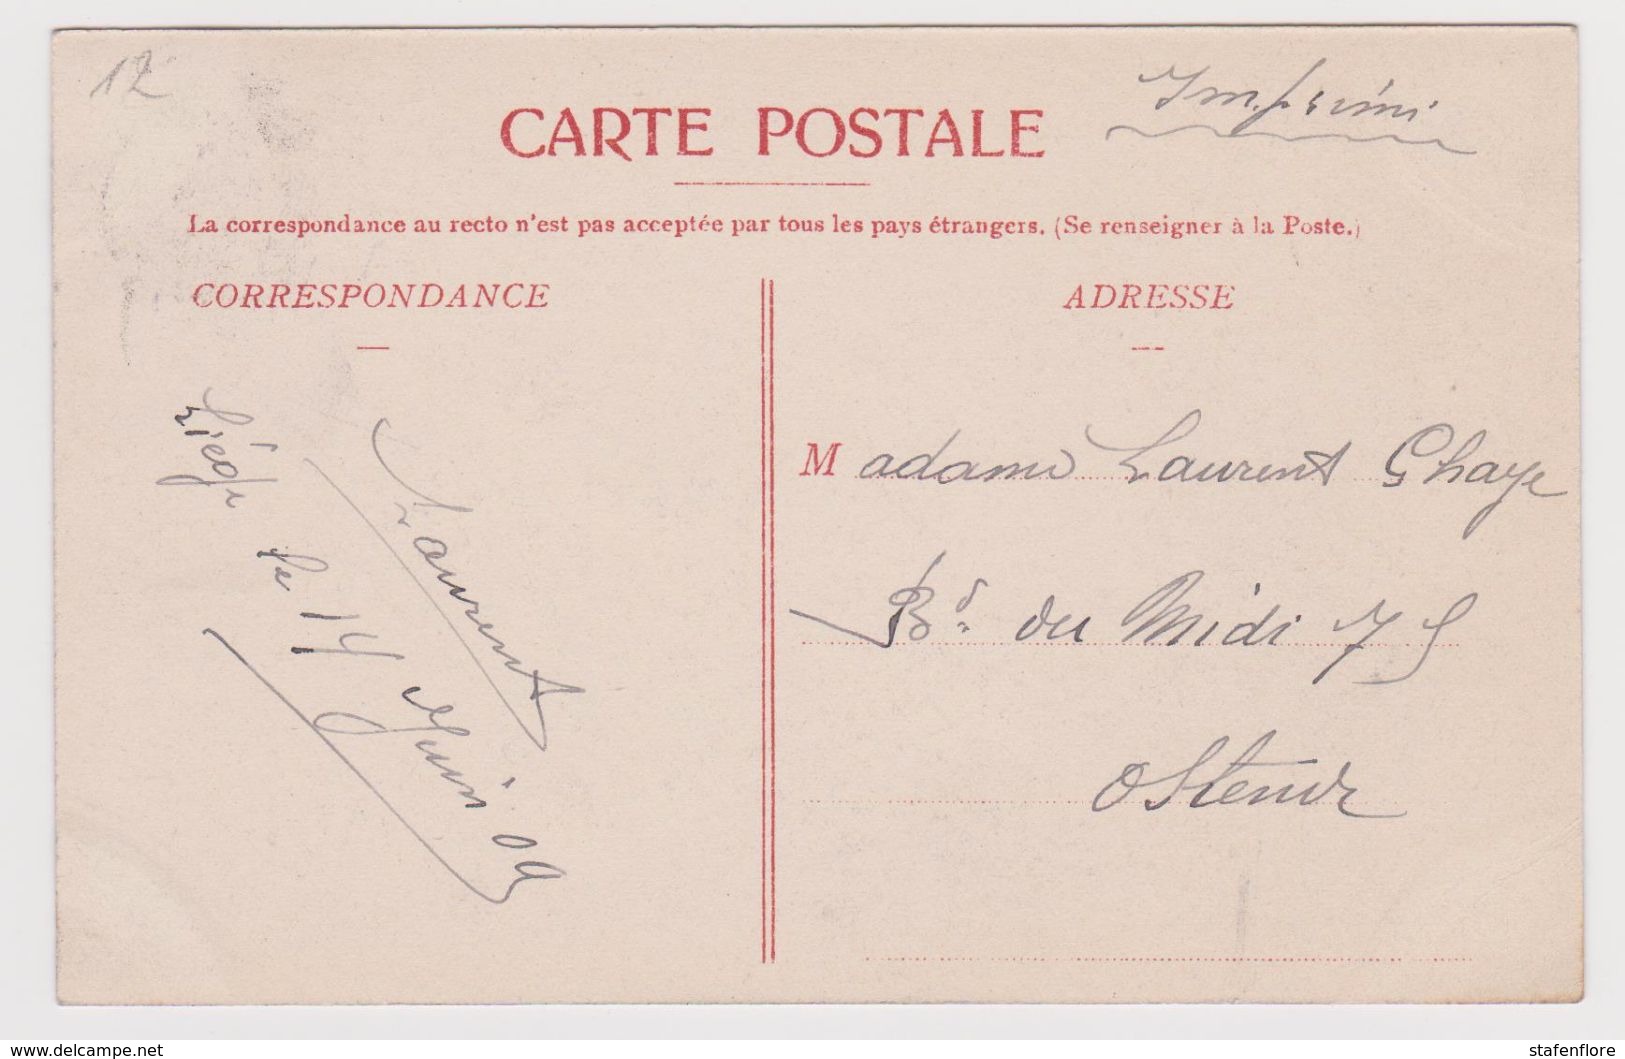 12
Imprimé
CARTE POSTALE
La correspondance au recto n'est pas acceptée par tous les pays étrangers. (Se renseigner à la Poste.)
CORRESPONDANCE
ADRESSE
Liége
le 14 Juin 09
Laurent
Madame Laurent Ghaye
Bd. du Midi 75
Ostende
www.delcampe.net
stafenflore